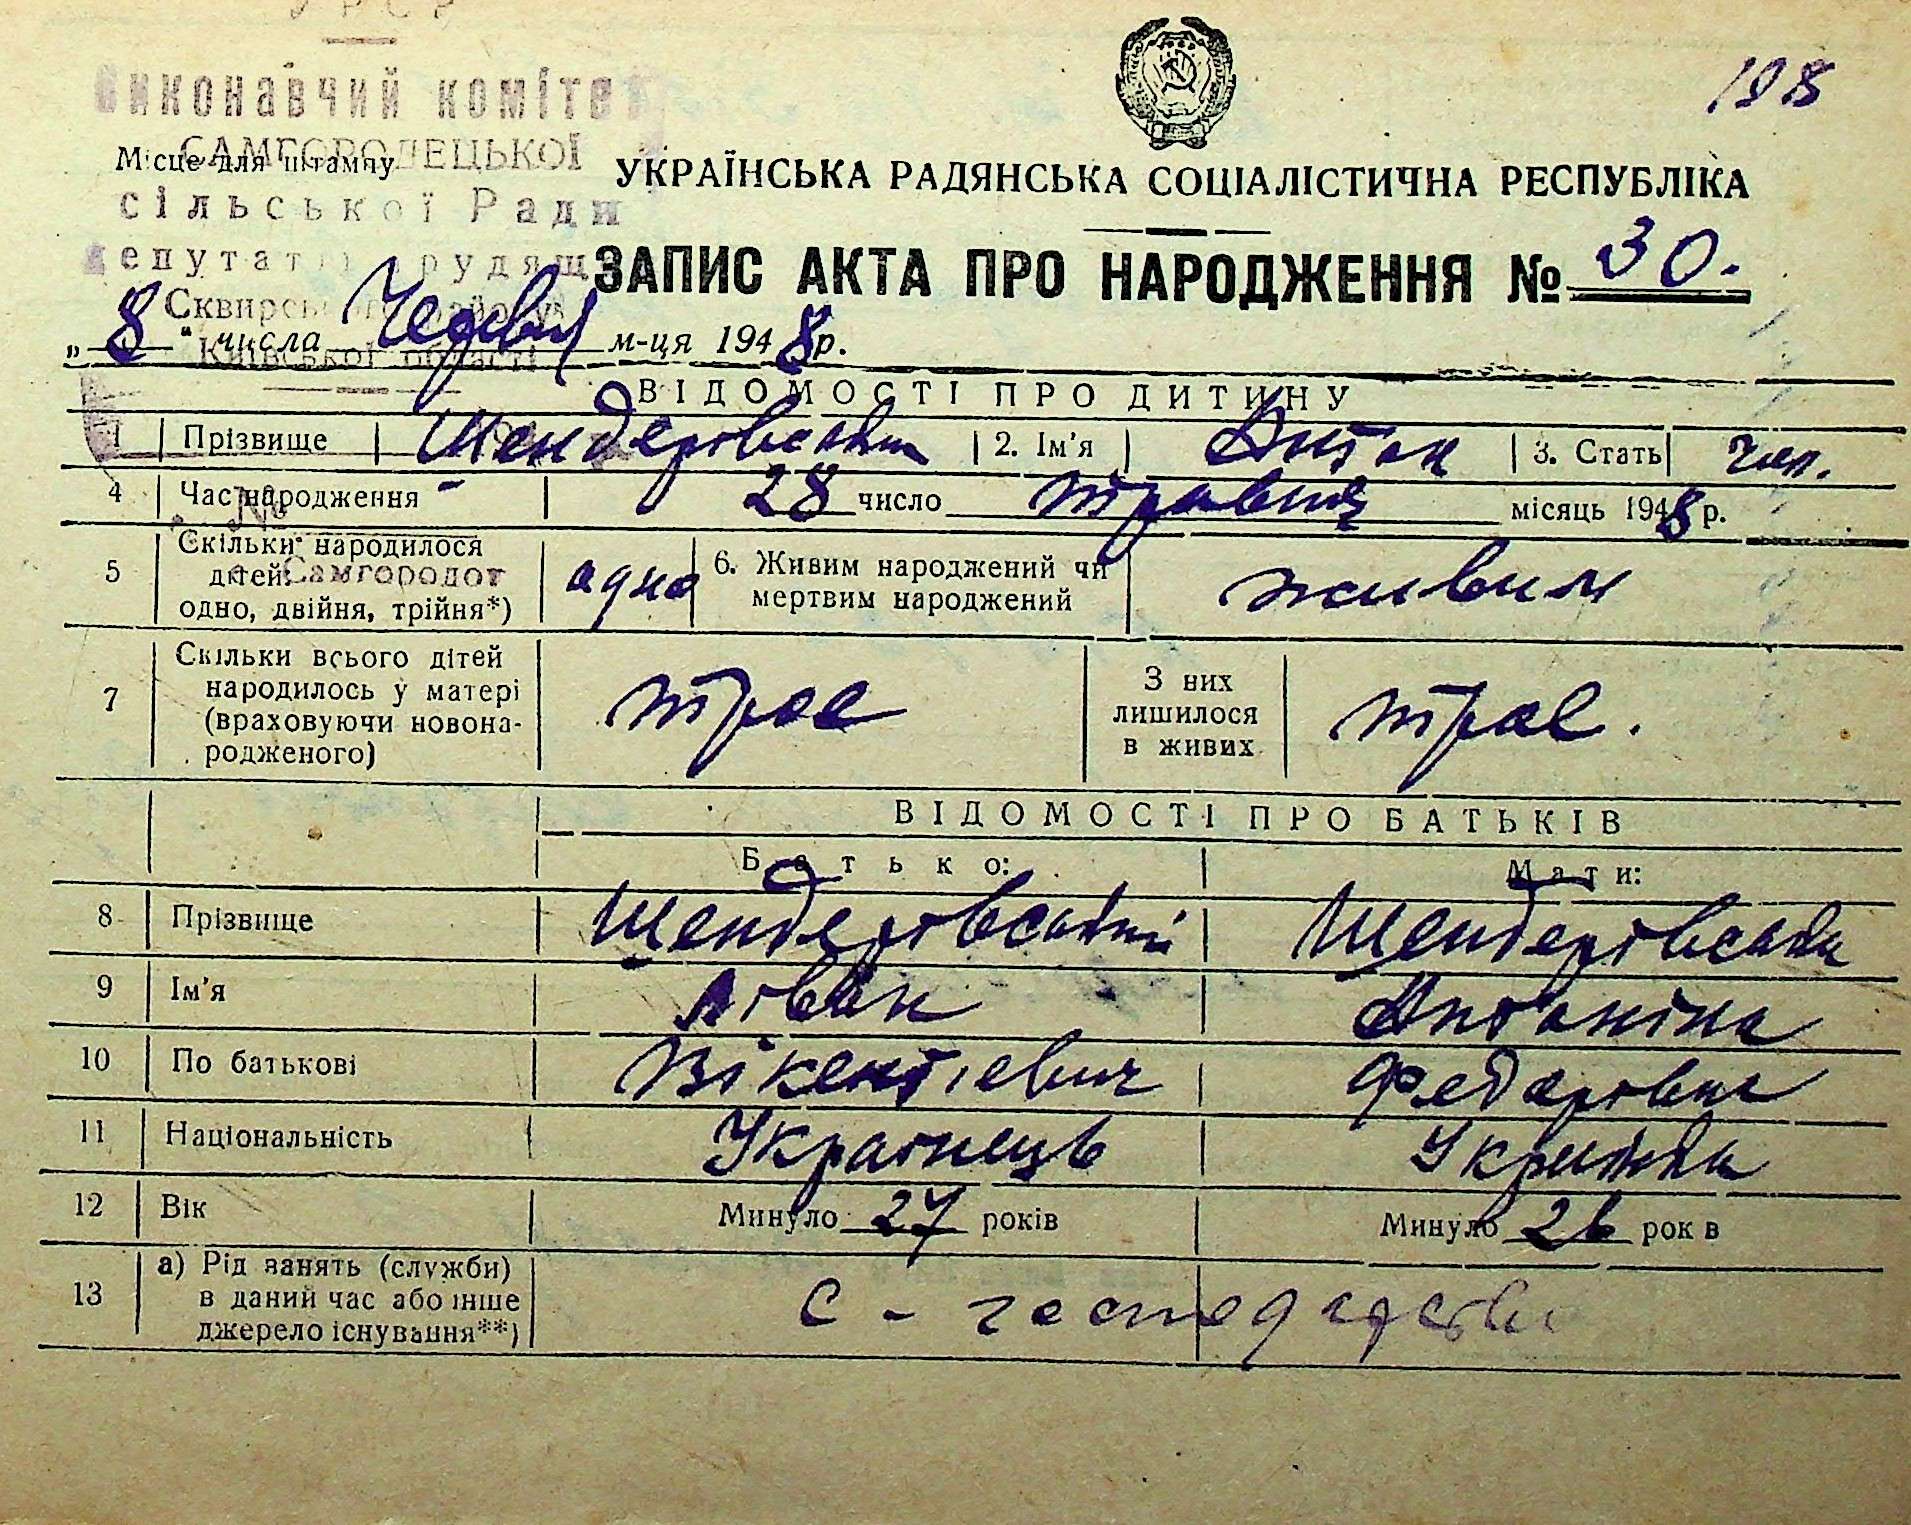 УРСР
Виконавчий комітет
САМГОРОДЕЦЬКОЇ
Місце для штампу
сільської Ради
депутатів трудящ
Сквирського району
Київської області
198
УКРАЇНСЬКА РАДЯНСЬКА СОЦІАЛІСТИЧНА РЕСПУБЛІКА
ЗАПИС АКТА ПРО НАРОДЖЕННЯ № 30.
„8“ числа Червня м-ця 1948 р.
ВІДОМОСТІ ПРО ДИТИНУ
1 Прізвище Шендеровський 2. Ім'я Антон 3. Стать чол.
4 Час народження 28 число травня місяць 1948 р.
№
5 Скільки народилося дітей: одно, двійня, трійня*) одно 6. Живим народжений чи мертвим народжений живим
с. Самгородок
7 Скільки всього дітей народилось у матері (враховуючи новонародженого) троє З них лишилося в живих троє.
ВІДОМОСТІ ПРО БАТЬКІВ
Батько: Мати:
8 Прізвище Шендеровський Шендеровська
9 Ім'я Іван Антоніна
10 По батькові Вікентіевич Федоровна
11 Національність Українець Українка
12 Вік Минуло 27 років Минуло 26 років
13 а) Рід занять (служби) в даний час або інше джерело існування**) с-господарство